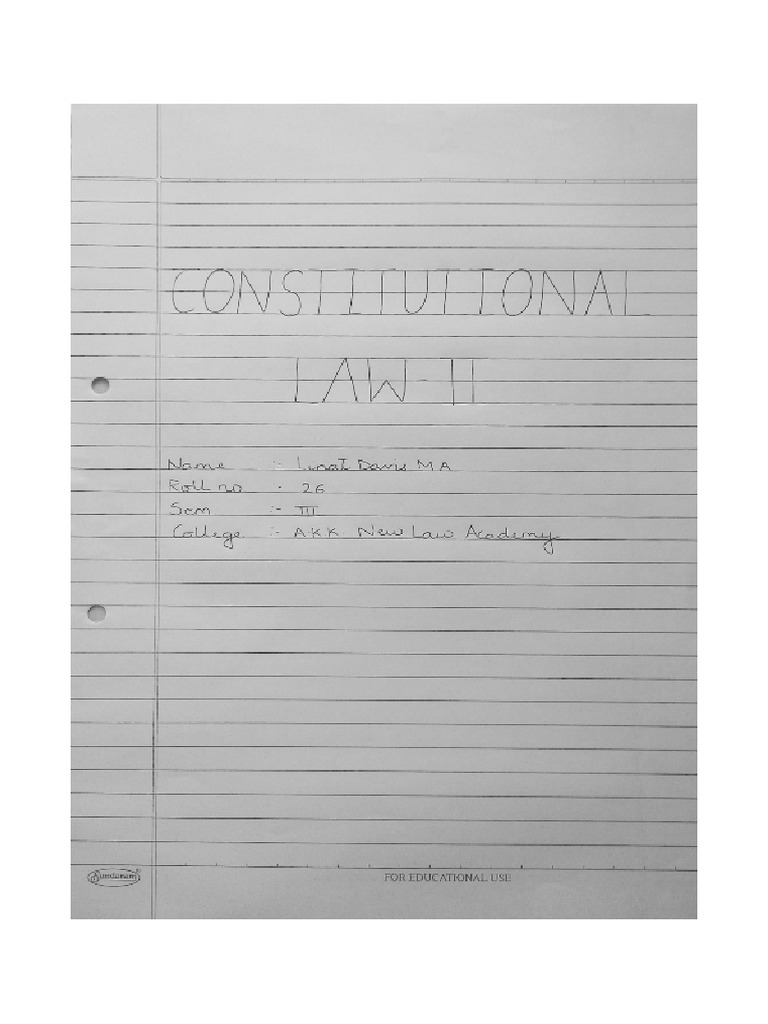 CONSTITUTIONAL
LAW-II
Name :- Davis M A
Roll no - 26
Sem :- III
College :- AKK New Law Academy
Sundaram
FOR EDUCATIONAL USE